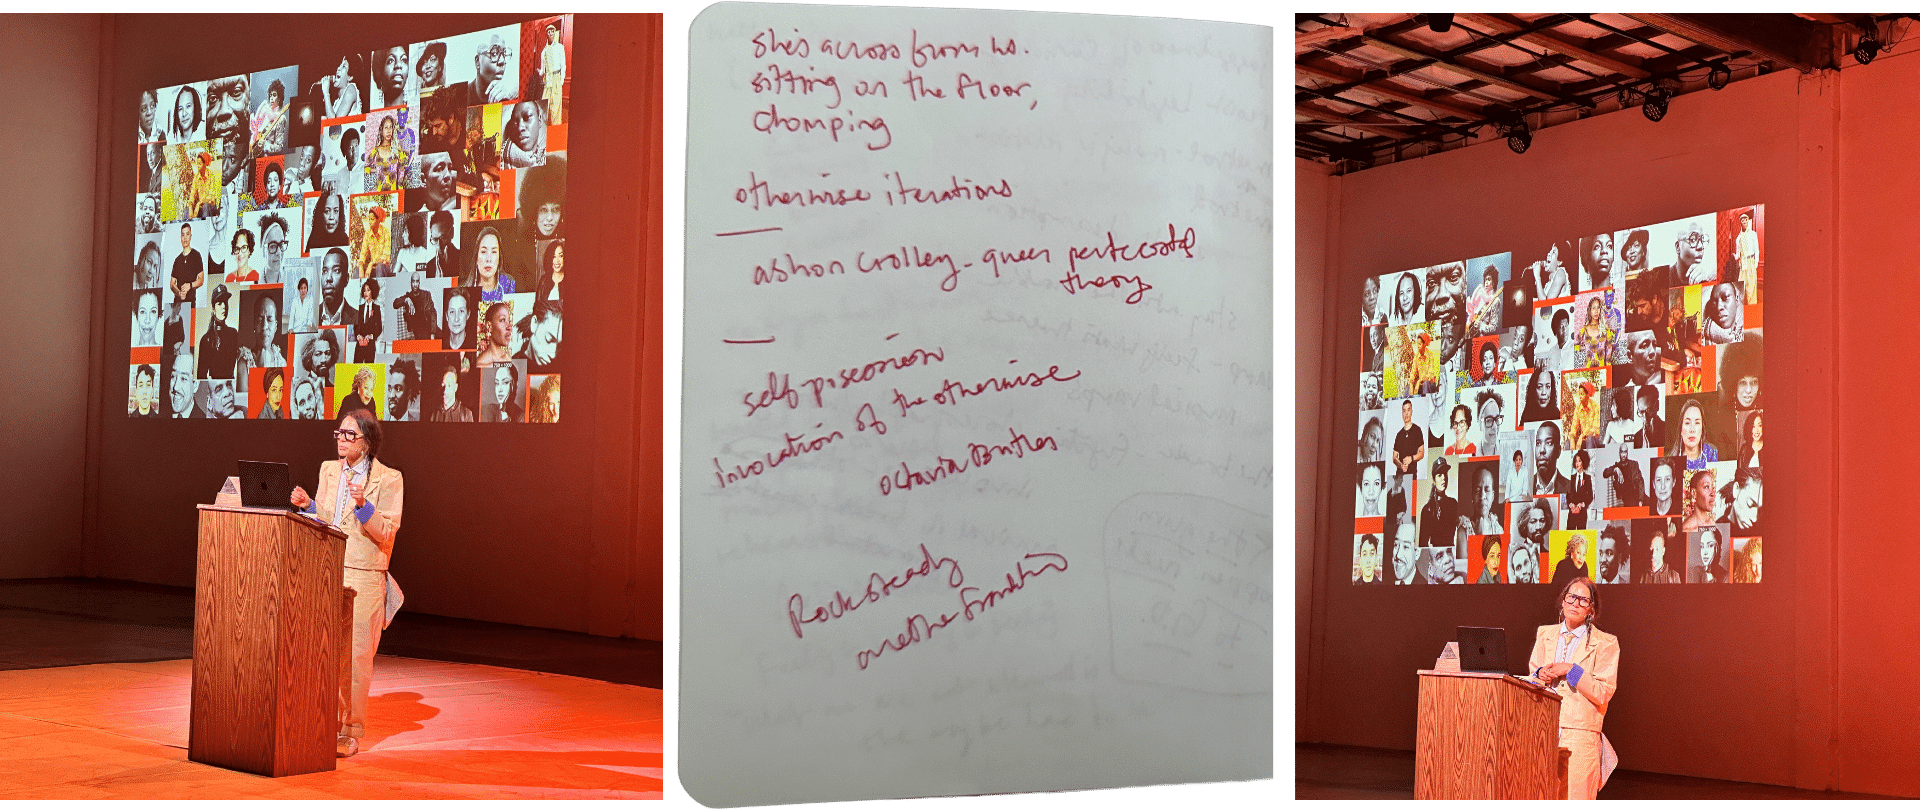 she's across from us.
sitting on the floor,
chomping
otherwise iterations
ashon crolley - queer pentecostal
theory
self possession
invocation of the otherwise
octavia Butler
Rock steady
arethe Franklin